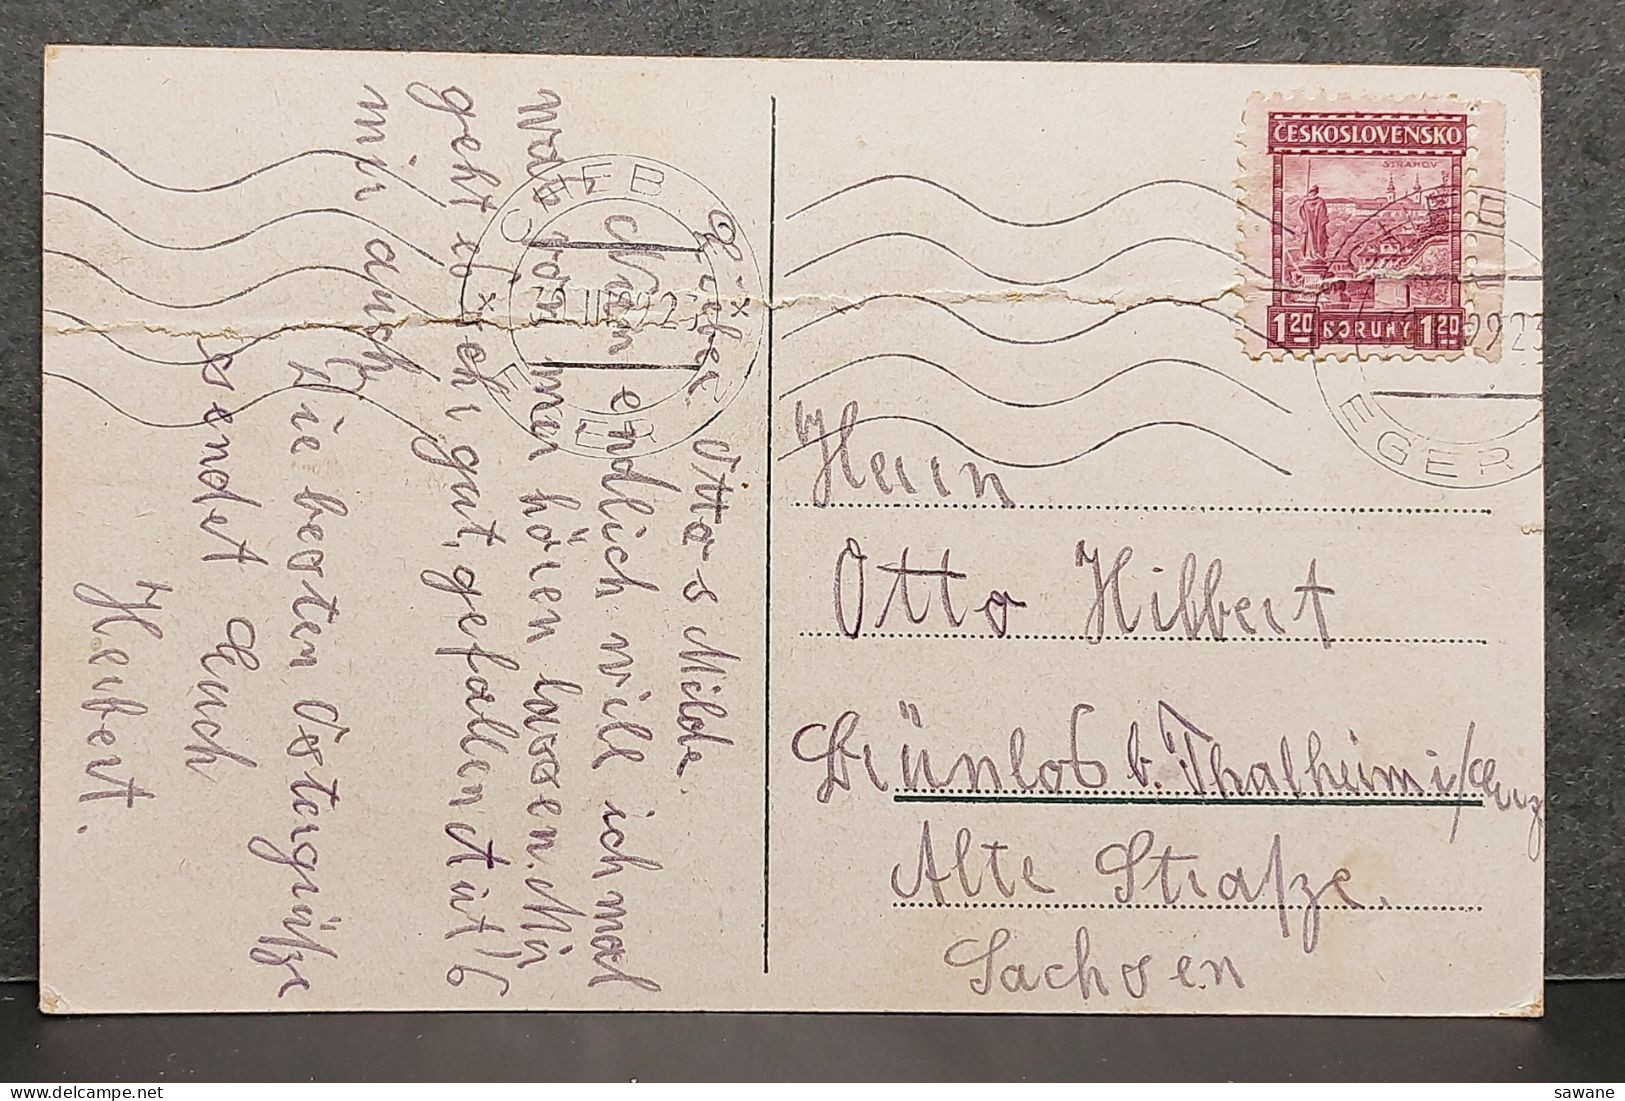 Lieber Otto s Milda.
Nun endlich will ich mal
von mir hören lassen. Mir
geht es sehr gut, gefallen tut's
mir auch.
Die besten Ostergrüße
sendet Euch
Herbert.
ČESKOSLOVENSKO
STRAHOV
1 20 KORUNY 1 20
CHEB
EGER
EGER
Herrn
Otto Hilbert
Dünlos b. Thalheim i/Erz
Alte Straße.
Sachsen
sawane